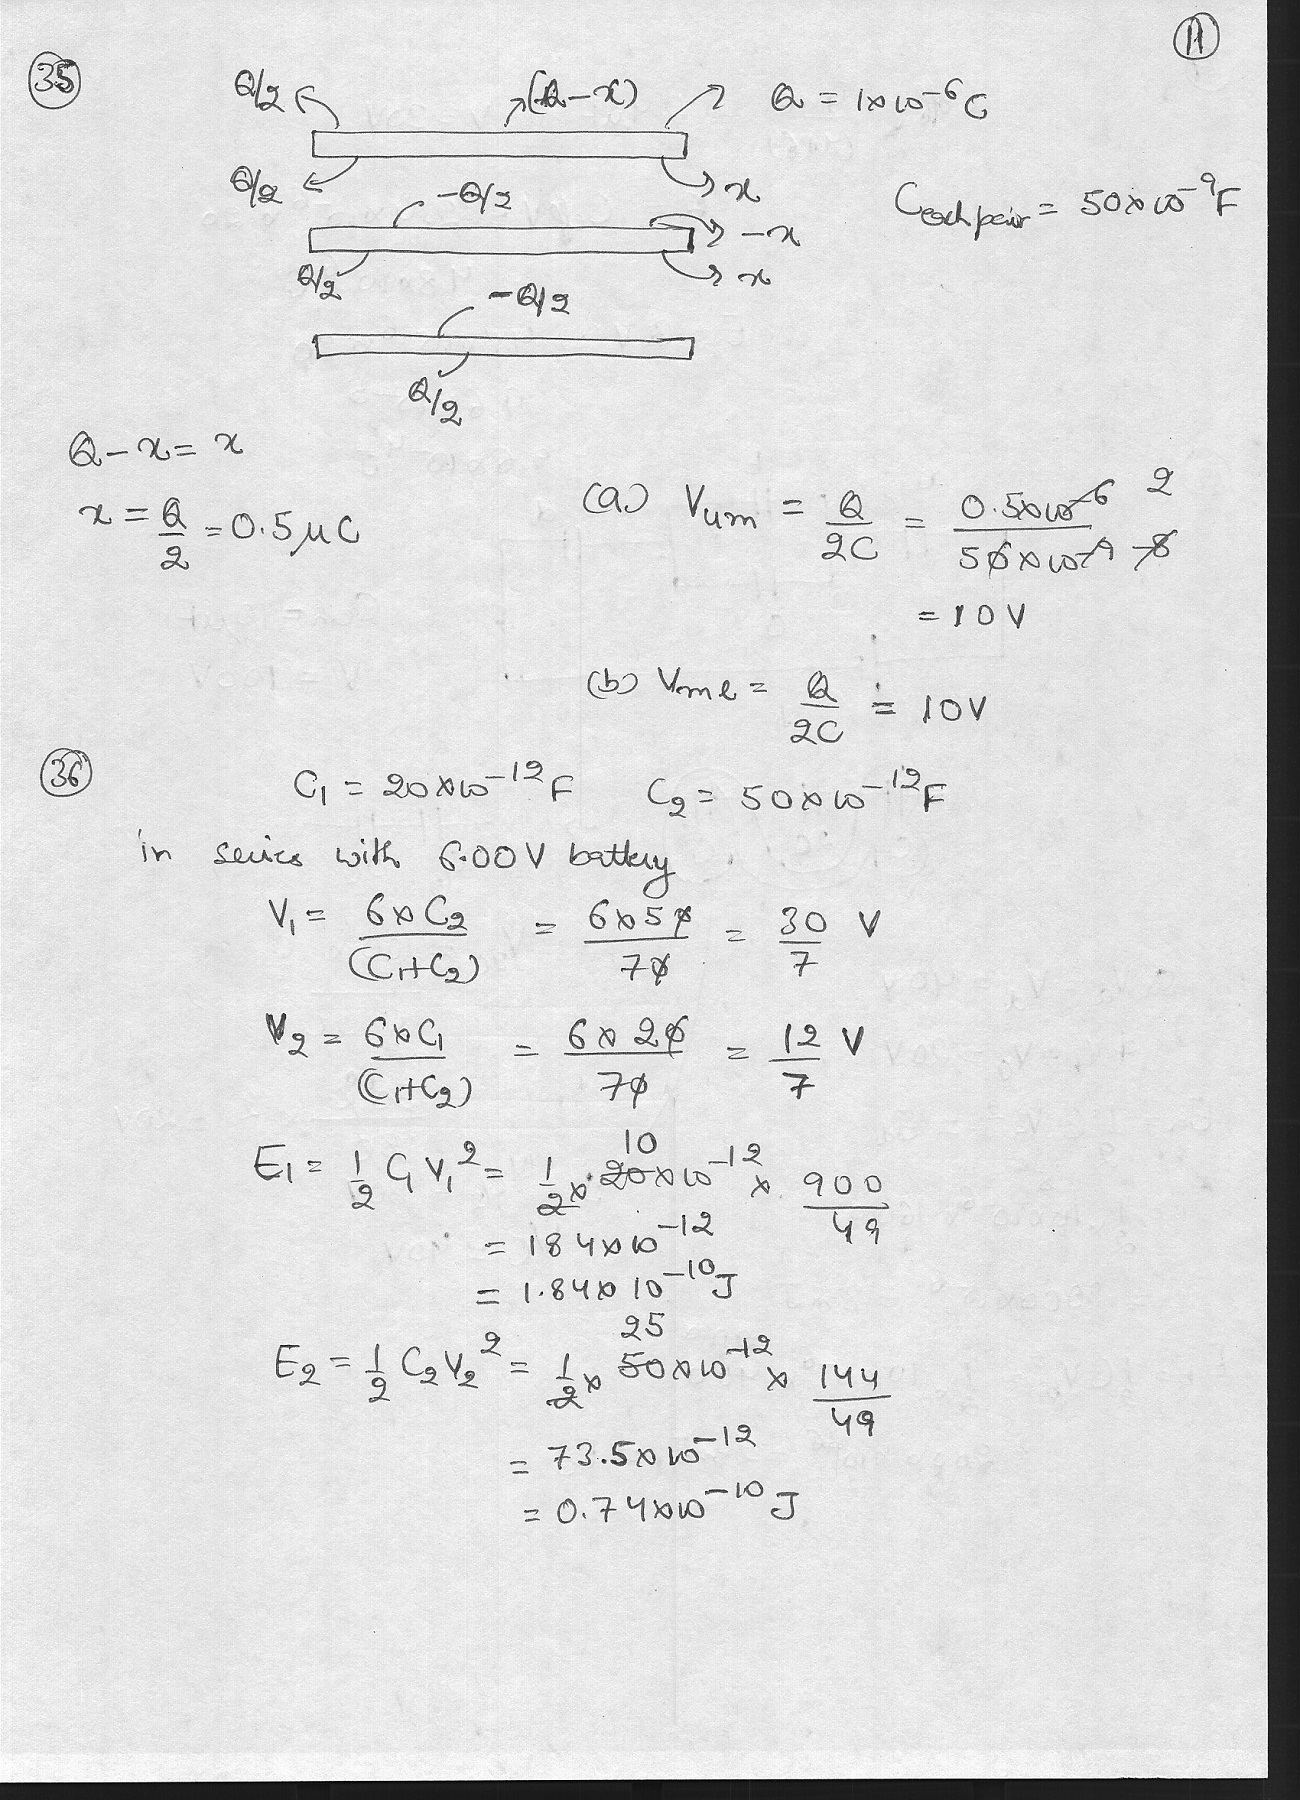 11
35
Q/2 (Q-x) Q = 1×10⁻⁶C
Q/2 x C each pair = 50×10⁻⁹F
-Q/2 -x
Q/2 x
-Q/2
Q/2
Q-x = x
x = Q/2 = 0.5μC
(a) Vum = Q/2C = 0.5×10⁻⁶/50×10⁻⁹ 2 -8
= 10V
(b) Vml = Q/2C = 10V
36
C₁ = 20×10⁻¹²F C₂ = 50×10⁻¹²F
in series with 6.00V battery
V₁ = 6×C₂/(C₁+C₂) = 6×50/70 = 30/7 V
V₂ = 6×C₁/(C₁+C₂) = 6×20/70 = 12/7 V
E₁ = 1/2 C₁V₁² = 1/2 × 20×10⁻¹² × 900/49
10
= 184×10⁻¹²
= 1.84×10⁻¹⁰J
25
E₂ = 1/2 C₂V₂² = 1/2 × 50×10⁻¹² × 144/49
= 73.5×10⁻¹²
= 0.74×10⁻¹⁰J